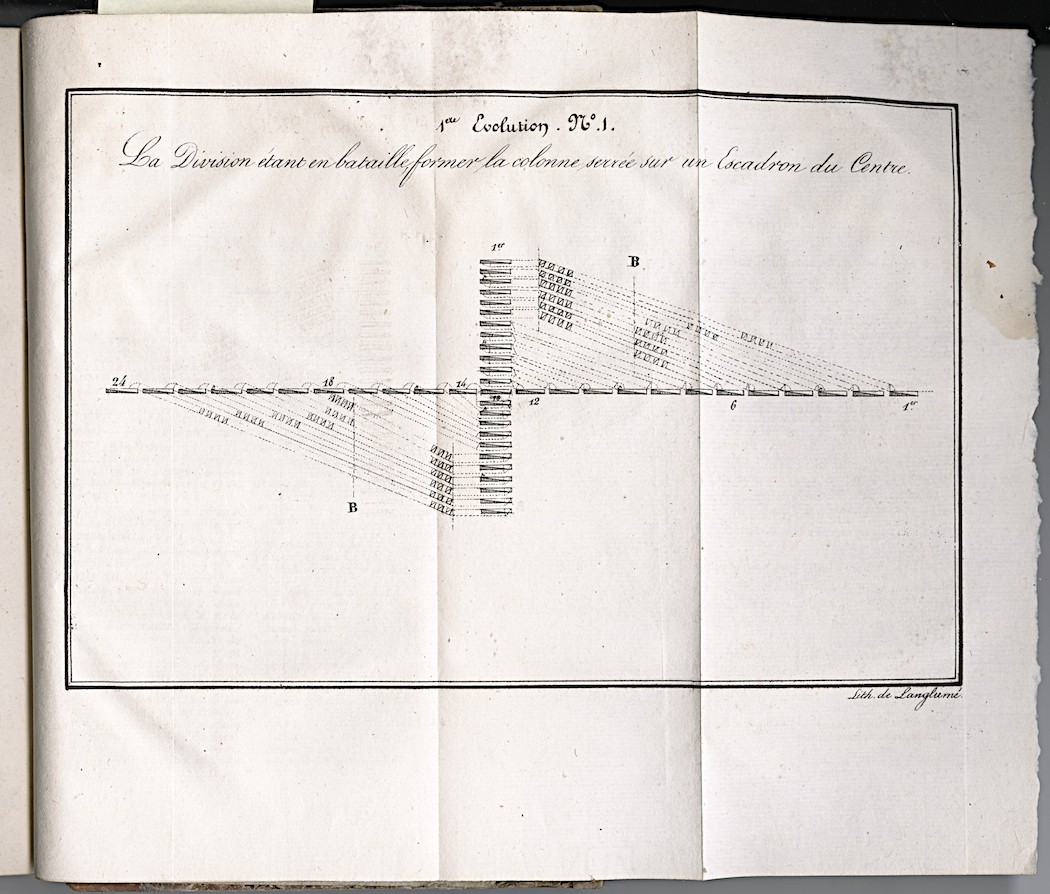 1ere Evolution. N°.1.
La Division étant en bataille, former la colonne serrée sur un Escadron du Centre.
1er
B
24
18
14
12
6
1er
B
Lith. de Langlumé.